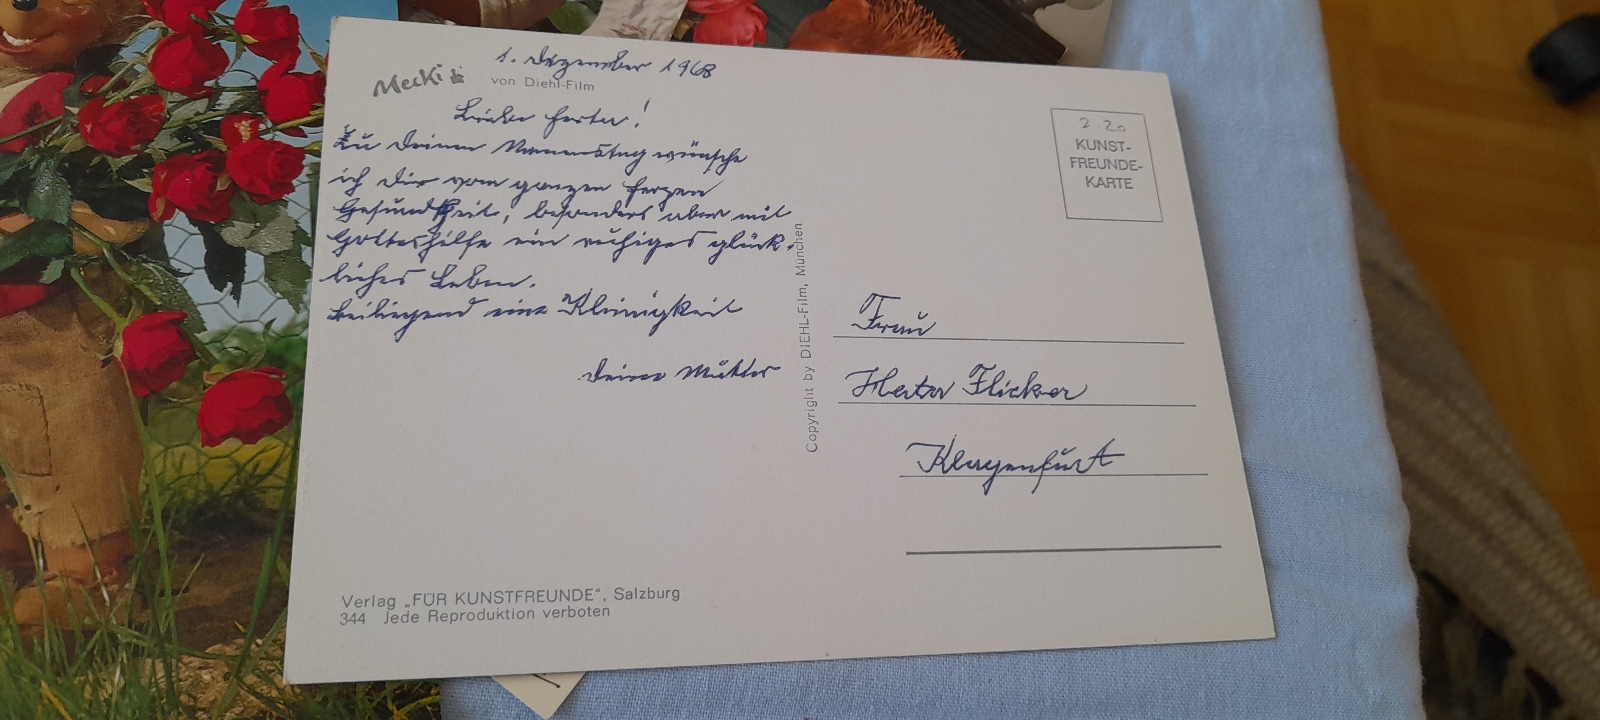 1. Dezember 1968
Mecki
von Diehl-Film
Liebe Herta!
Zu Deinem Namenstag wünsche
ich Dir vom ganzen Herzen
Gesundheit, besonders aber mit
Gotteshilfe ein ruhiges glück-
liches Leben.
Beiliegend eine Kleinigkeit
Deine Mutter
Copyright by DIEHL-Film, München
2.20
KUNST-
FREUNDE-
KARTE
Frau
Herta Flicker
Klagenfurt
Verlag „FÜR KUNSTFREUNDE", Salzburg
344 Jede Reproduktion verboten